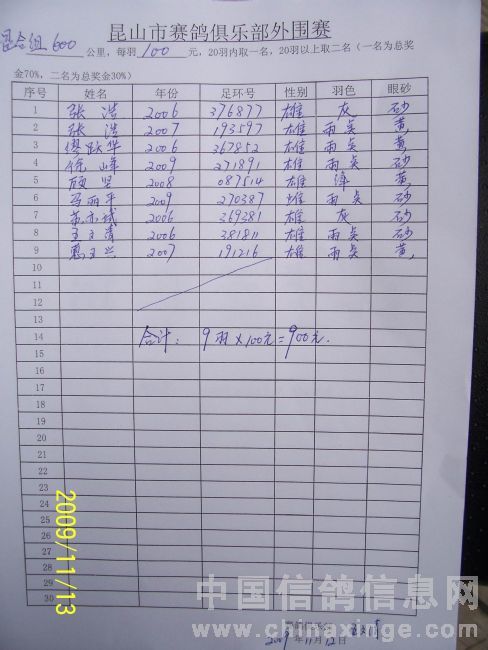 昆山市赛鸽俱乐部外围赛
混合组 600 公里，每羽 100 元，20羽内取一名，20羽以上取二名（一名为总奖
金70%，二名为总奖金30%）
序号 姓名 年份 足环号 性别 羽色 眼砂
1 张浩 2006 376877 雄 灰 砂
2 张浩 2007 193597 雄 雨点 黄
3 缪跃华 2006 367852 雄 雨点 黄
4 徐峰 2009 271891 雄 雨点 砂
5 顾坚 2008 087514 雄 绛 黄
6 丽平 2009 270387 雄 雨点 砂
7 2006 369381 雄 灰 砂
8 王文清 2006 381811 雄 雨点 砂
9 2007 191216 雄 雨点 黄
10
11
12
13
14 合计: 9羽×100元=900元.
15
16
17
18
19
20
21
22
23
24
25
26
27
28
29
30
2009年11月12日
2009/11/13
中国信鸽信息网
www.chinaxinge.com